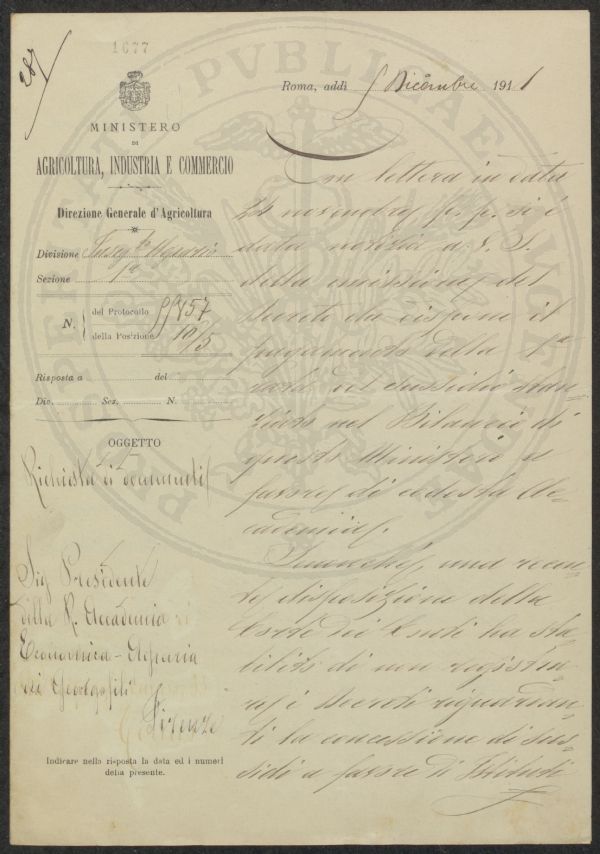 1677
287
Roma, addì 5 Dicembre 1911
MINISTERO
DI
AGRICOLTURA, INDUSTRIA E COMMERCIO
Direzione Generale d'Agricoltura
Divisione Inseg.to Agrario
Sezione 1a
N.
del Protocollo 55157
della Posizione 10/5
Risposta a del
Div. Sez. N.
OGGETTO
Richiesta di documenti
Sig Presidente
della R. Accademia
Economica-Agraria
dei Georgofili
Firenze
Indicare nella risposta la data ed i numeri
della presente.
Con lettera in data
24 novembre p. p. si è
data notizia a
della emissione del
decreto che dispone il
pagamento della 1a
del sussidio stan-
ziato nel Bilancio di
questo Ministero a
favore di codesta Ac-
cademia.
Sennonché, una recen-
te disposizione della
Corte dei Conti ha sta-
bilito di non registra-
re i decreti riguardan-
ti la concessione di sus-
sidi a favore di Istituti
PRO SPERITATI PVBLICAE AVGENDAE